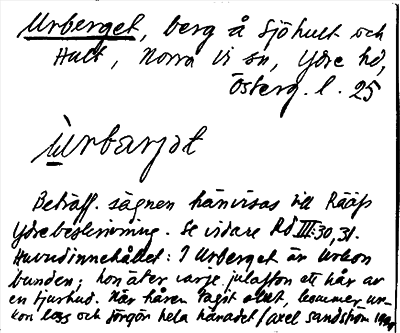 Urberget, berg å Sjöhult och
Hult, Norra Vi sn, Ydre hd,
Österg. l. 25
Ùrbarjət
Beträff. sägnen hänvisas till Rääfs
Ydrebeskrivning. Se vidare Rd III:30,31.
Huvudinnehållet: I Urberget är Urkon
bunden; hon äter varje julafton ett hår av
en tjurhud. När håren tagit slut, kommer ur-
kon loss och förgör hela häradet / Axel Sandström